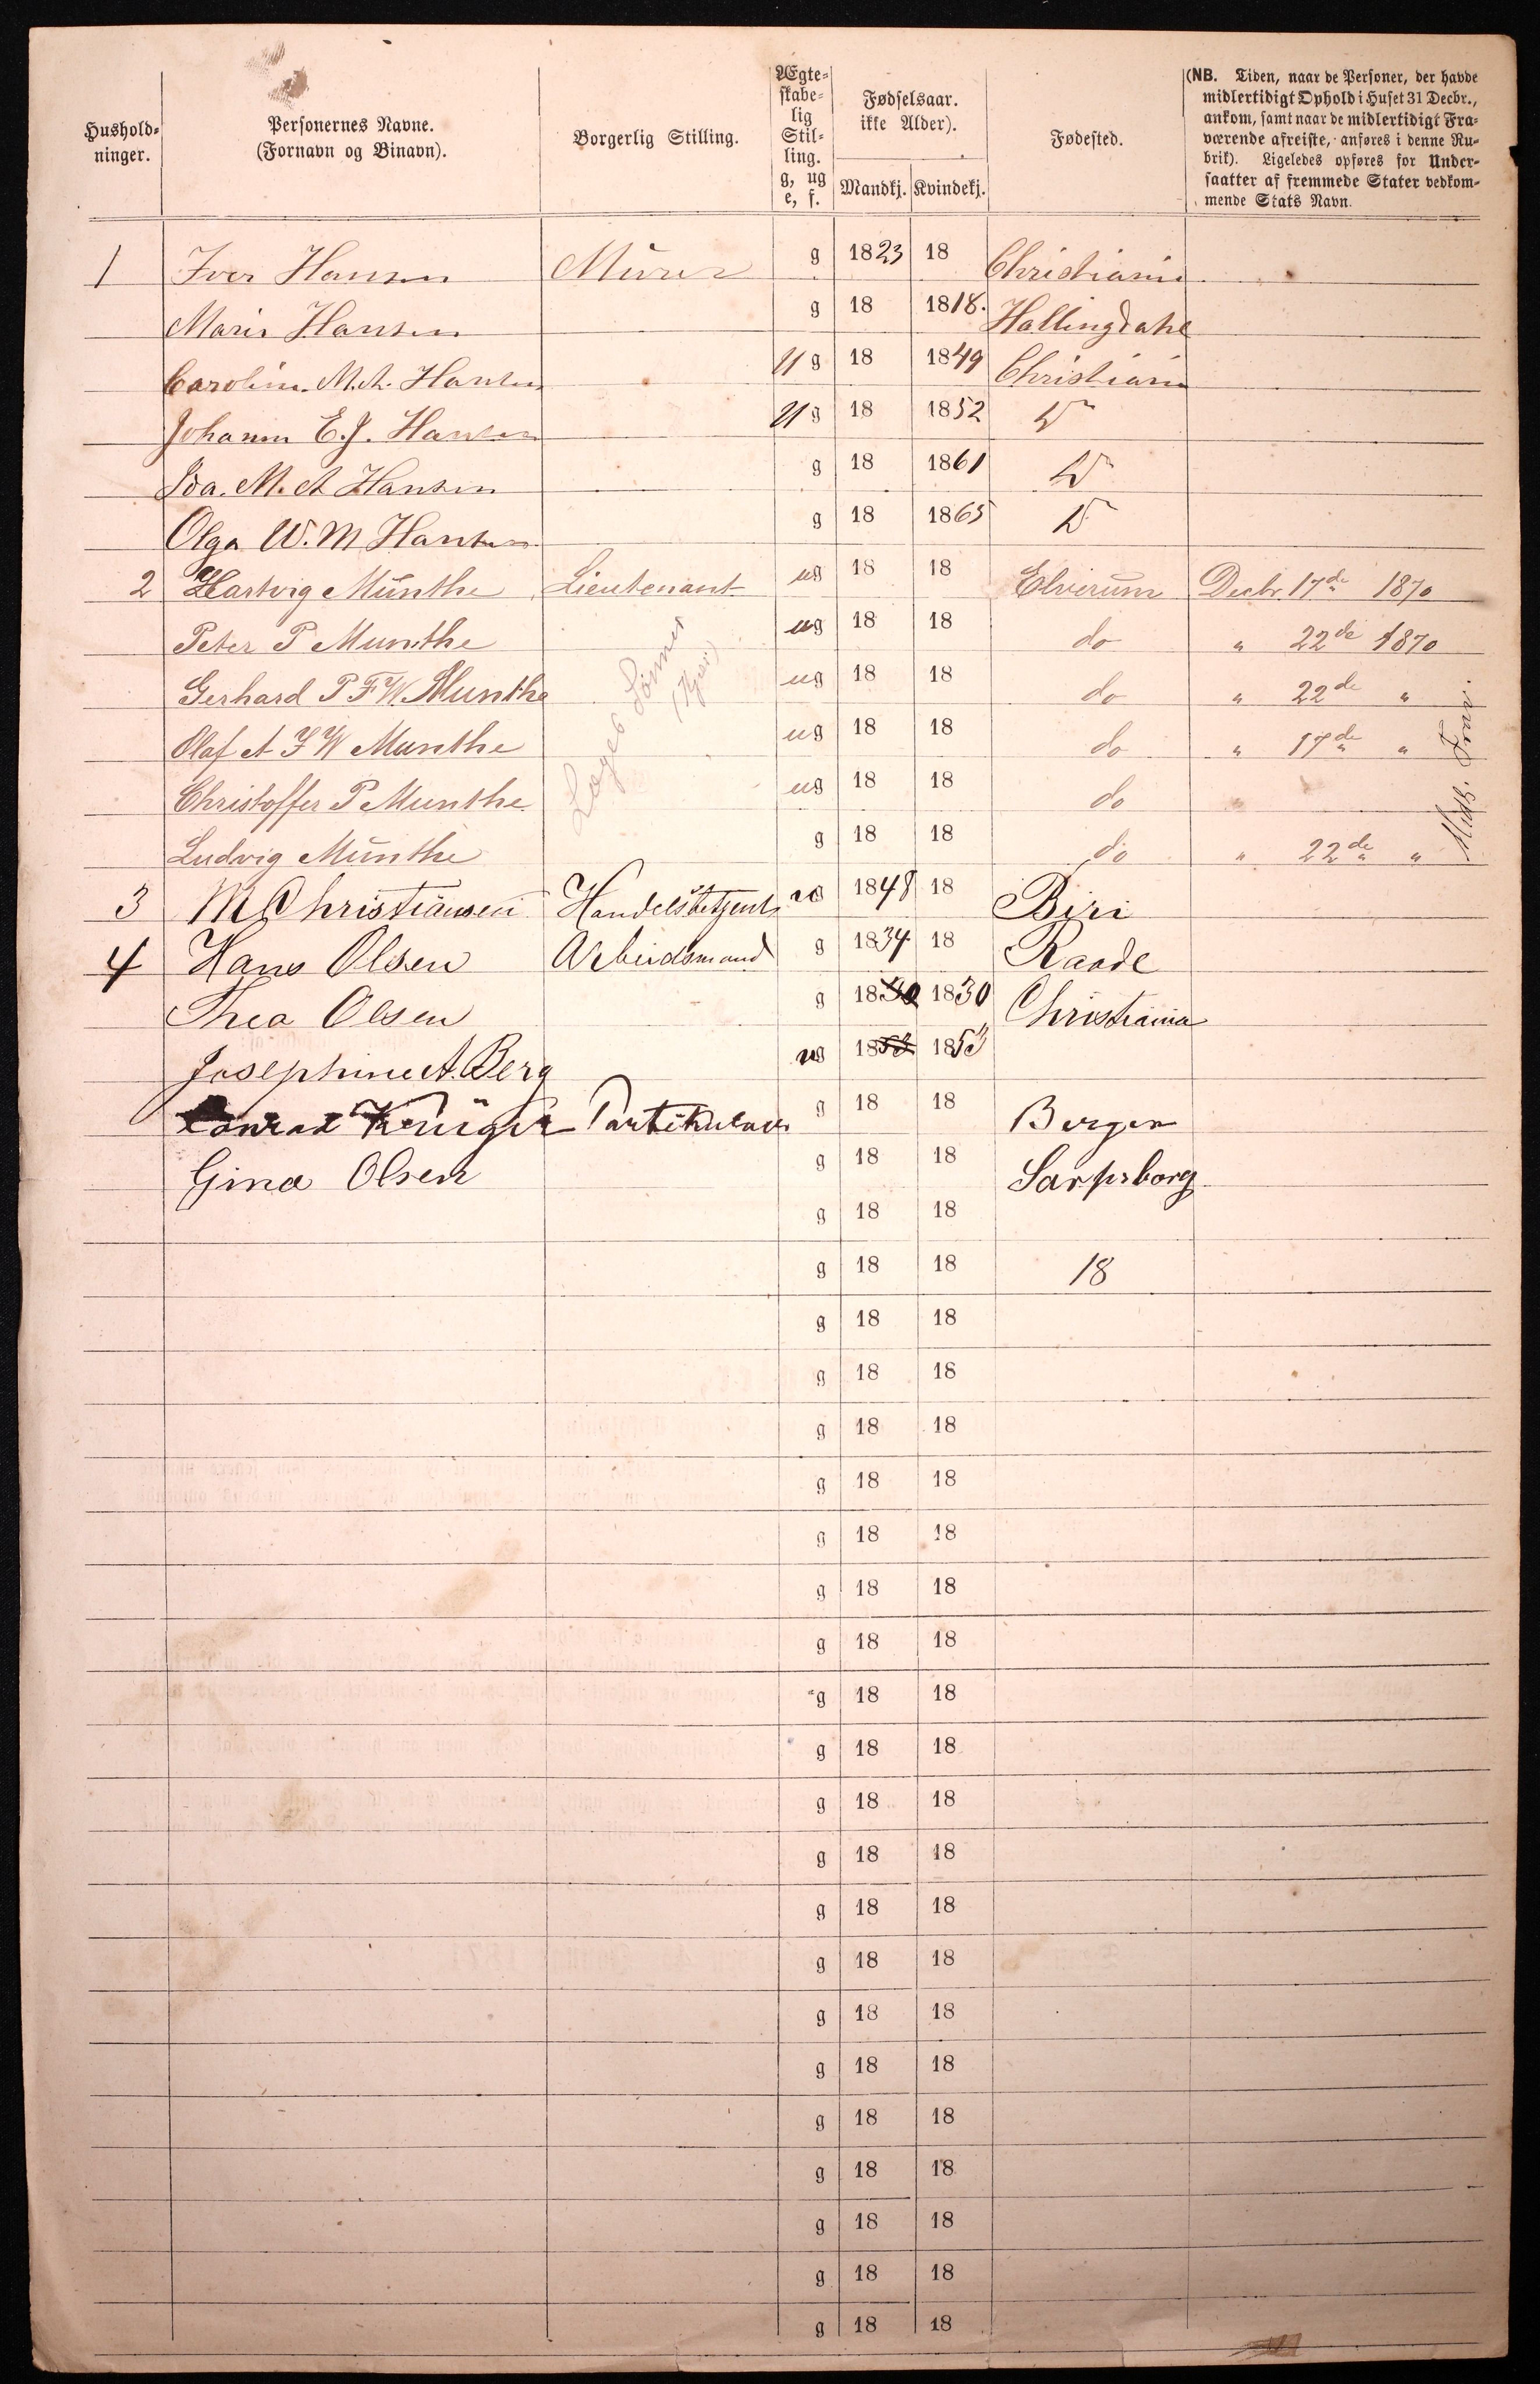 Hushold-
ninger.
Personernes Navne.
(Fornavn og Binavn).
Borgerlig Stilling.
Ægte-
skabe-
lig
Stil-
ling.
g, ug
e, f.
Fødselsaar.
ikke Alder).
Mandkj. Kvindekj.
Fødested.
(NB. Tiden, naar de Personer, der havde
midlertidigt Ophold i Huset 31 Decbr.,
ankom, samt naar de midlertidigt Fra-
værende afreiste, anføres i denne Ru-
brik). Ligeledes opføres for Under-
saatter af fremmede Stater vedkom-
mende Stats Navn.
1 Iver Hansen Murer g 1823 18 Christiania
Marie Hansen g 18 1818. Hallingdahl
Caroline M.A. Hansen ug 18 1849 Christiania
Johanne E.J. Hansen ug 18 1852 Do
Ida. M. A Hansen g 18 1861 Do
Olga W. M Hansen g 18 1865 Do
2 Hartvig Munthe Lieutenant ug 18 18 Elverum Decbr. 17de 1870
Peter P Munthe ug 18 18 do " 22de 1870
Gerhard P F W Munthe ug 18 18 do " 22de "
Olaf A F W Munthe ug 18 18 do " 17de "
Christoffer P Munthe ug 18 18 do "
Ludvig Munthe g 18 18 do " 22de "
Sønner
Midl. Frav.
3 M Christiansen Handelsbetjent ug 1848 18 Biri
4 Hans Olsen Arbeidsmand g 1834 18 Raade
Thea Olsen g 1830 1830 Christiania
Josephine A. Berg ug 1853 1853
Conrad Krüger Partikulær g 18 18 Bergen
Gina Olsen g 18 18 Sarpsborg
g 18 18
g 18 18 18
g 18 18
g 18 18
g 18 18
g 18 18
g 18 18
g 18 18
g 18 18
g 18 18
g 18 18
g 18 18
g 18 18
g 18 18
g 18 18
g 18 18
g 18 18
g 18 18
g 18 18
g 18 18
g 18 18
g 18 18